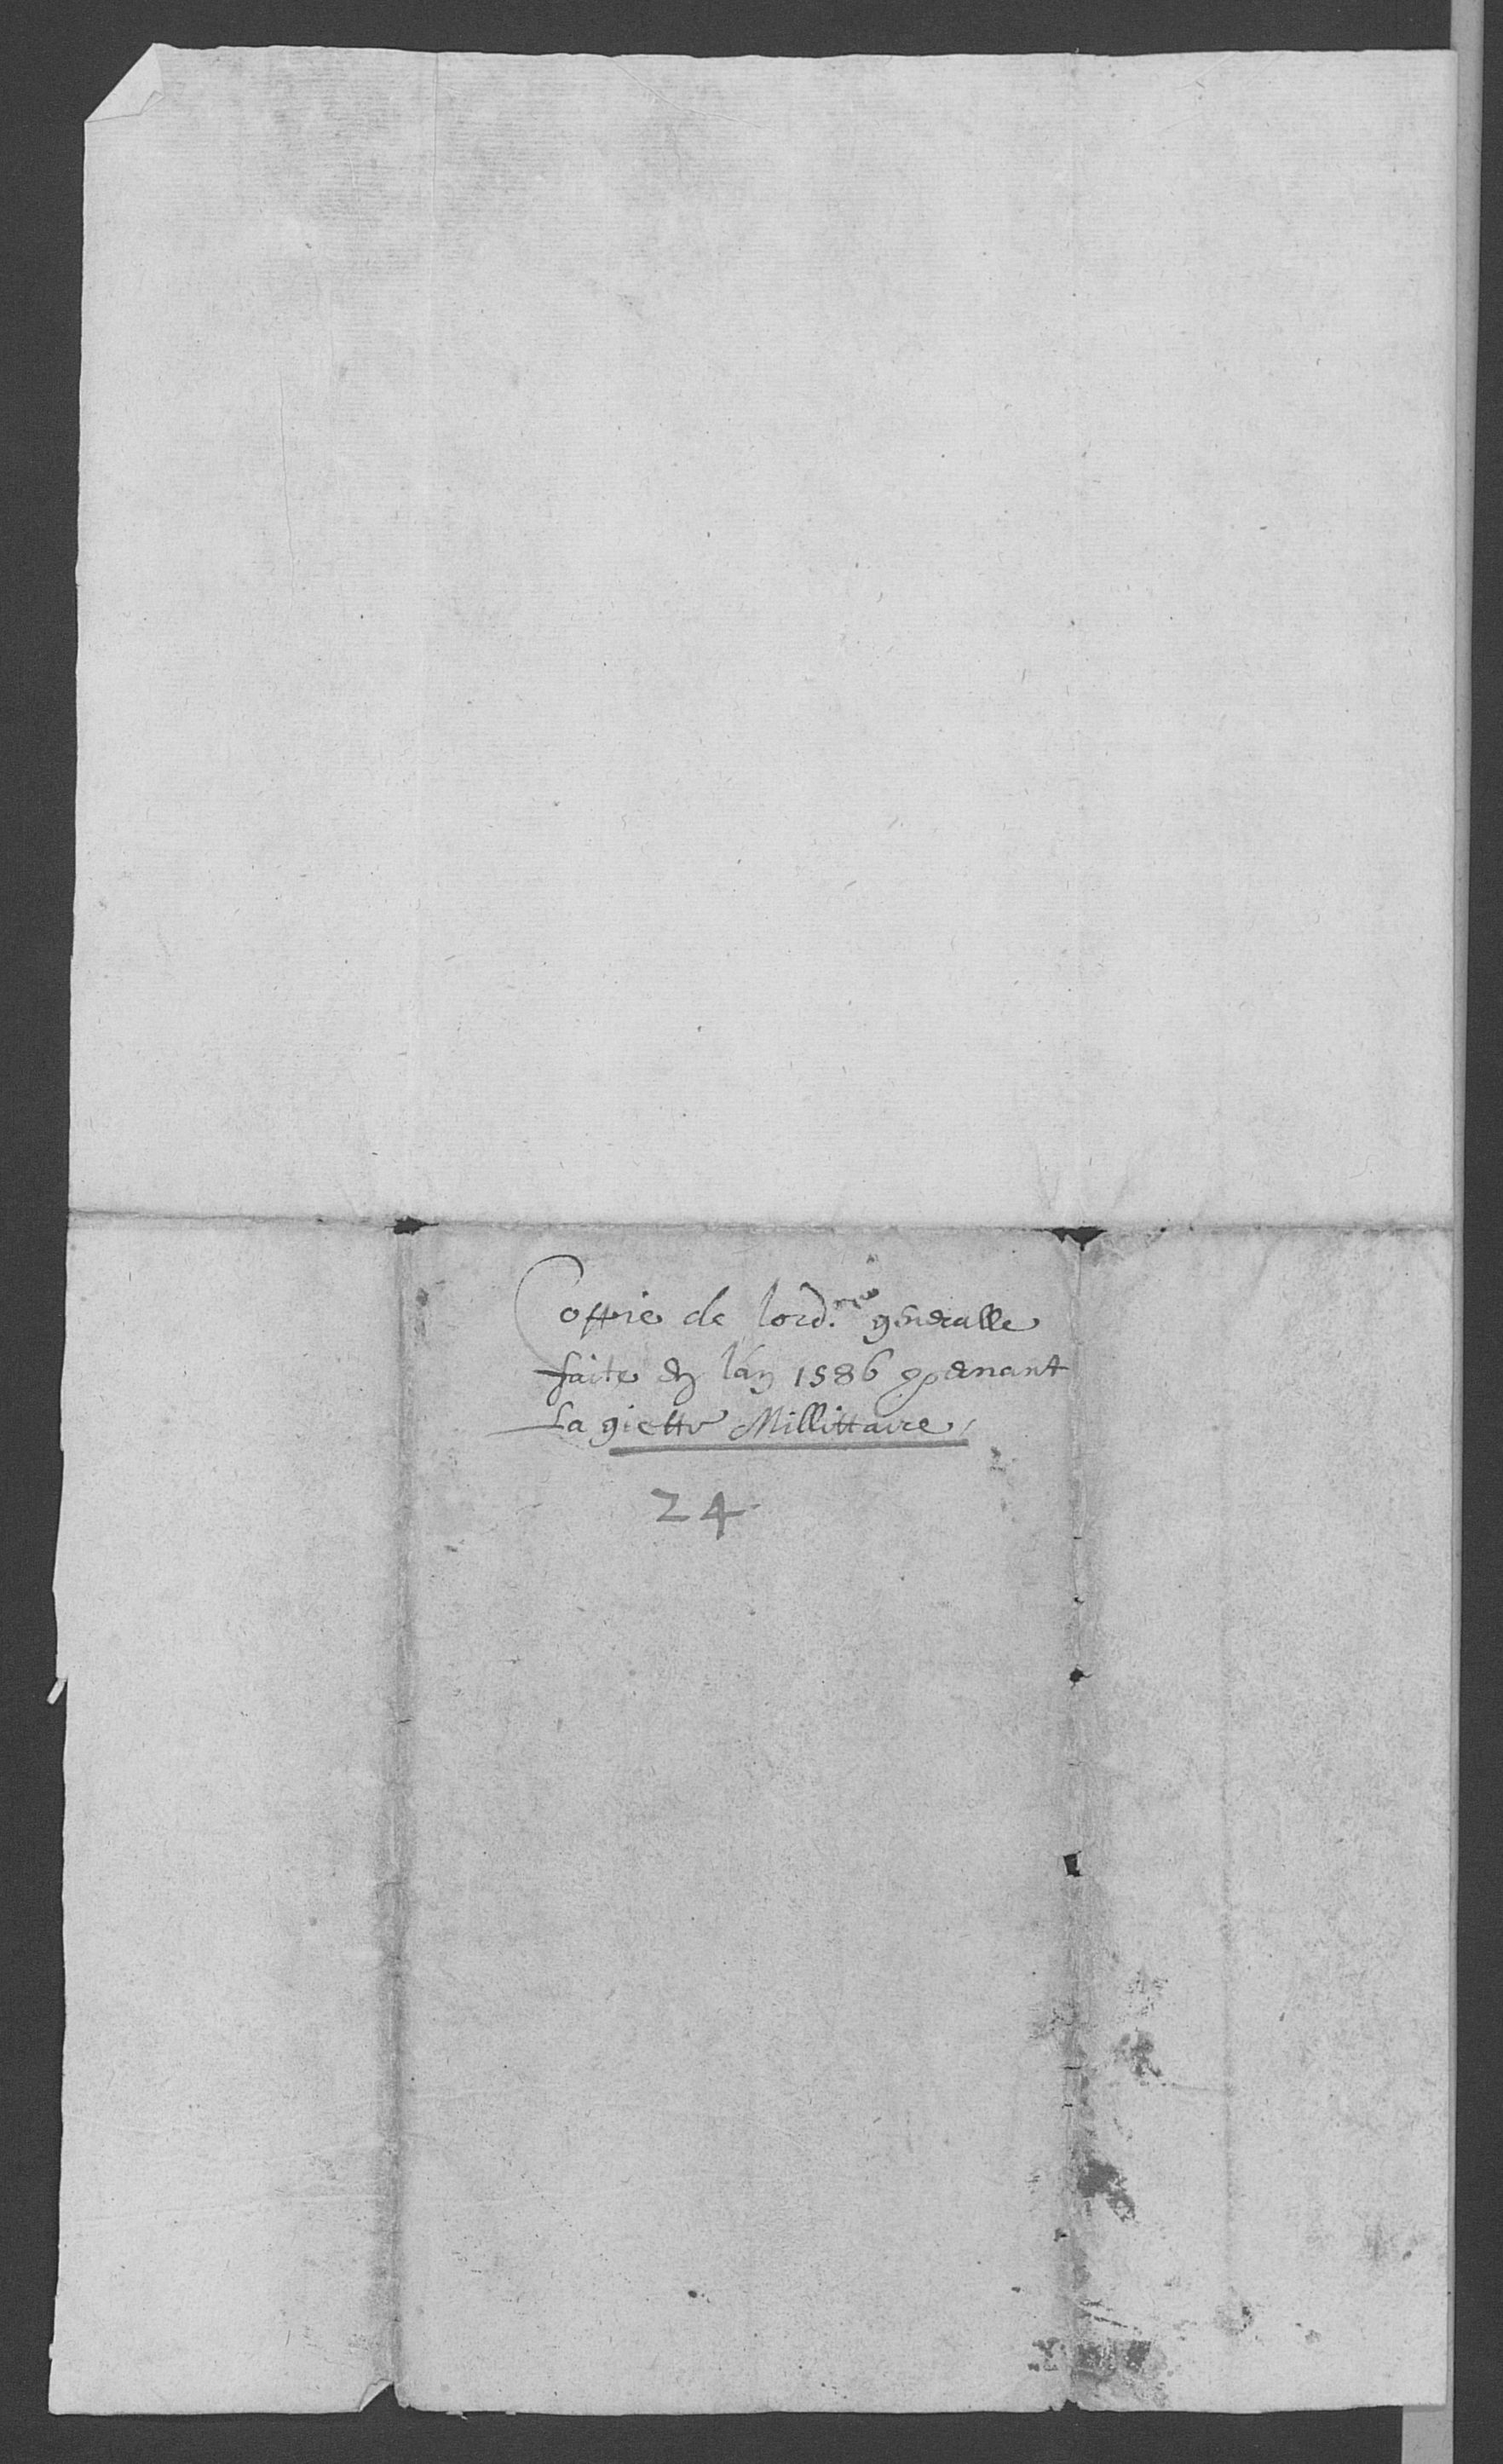 Coppie de lord.ce generalle
faite en lan 1586 
La giette Millittaire,
24